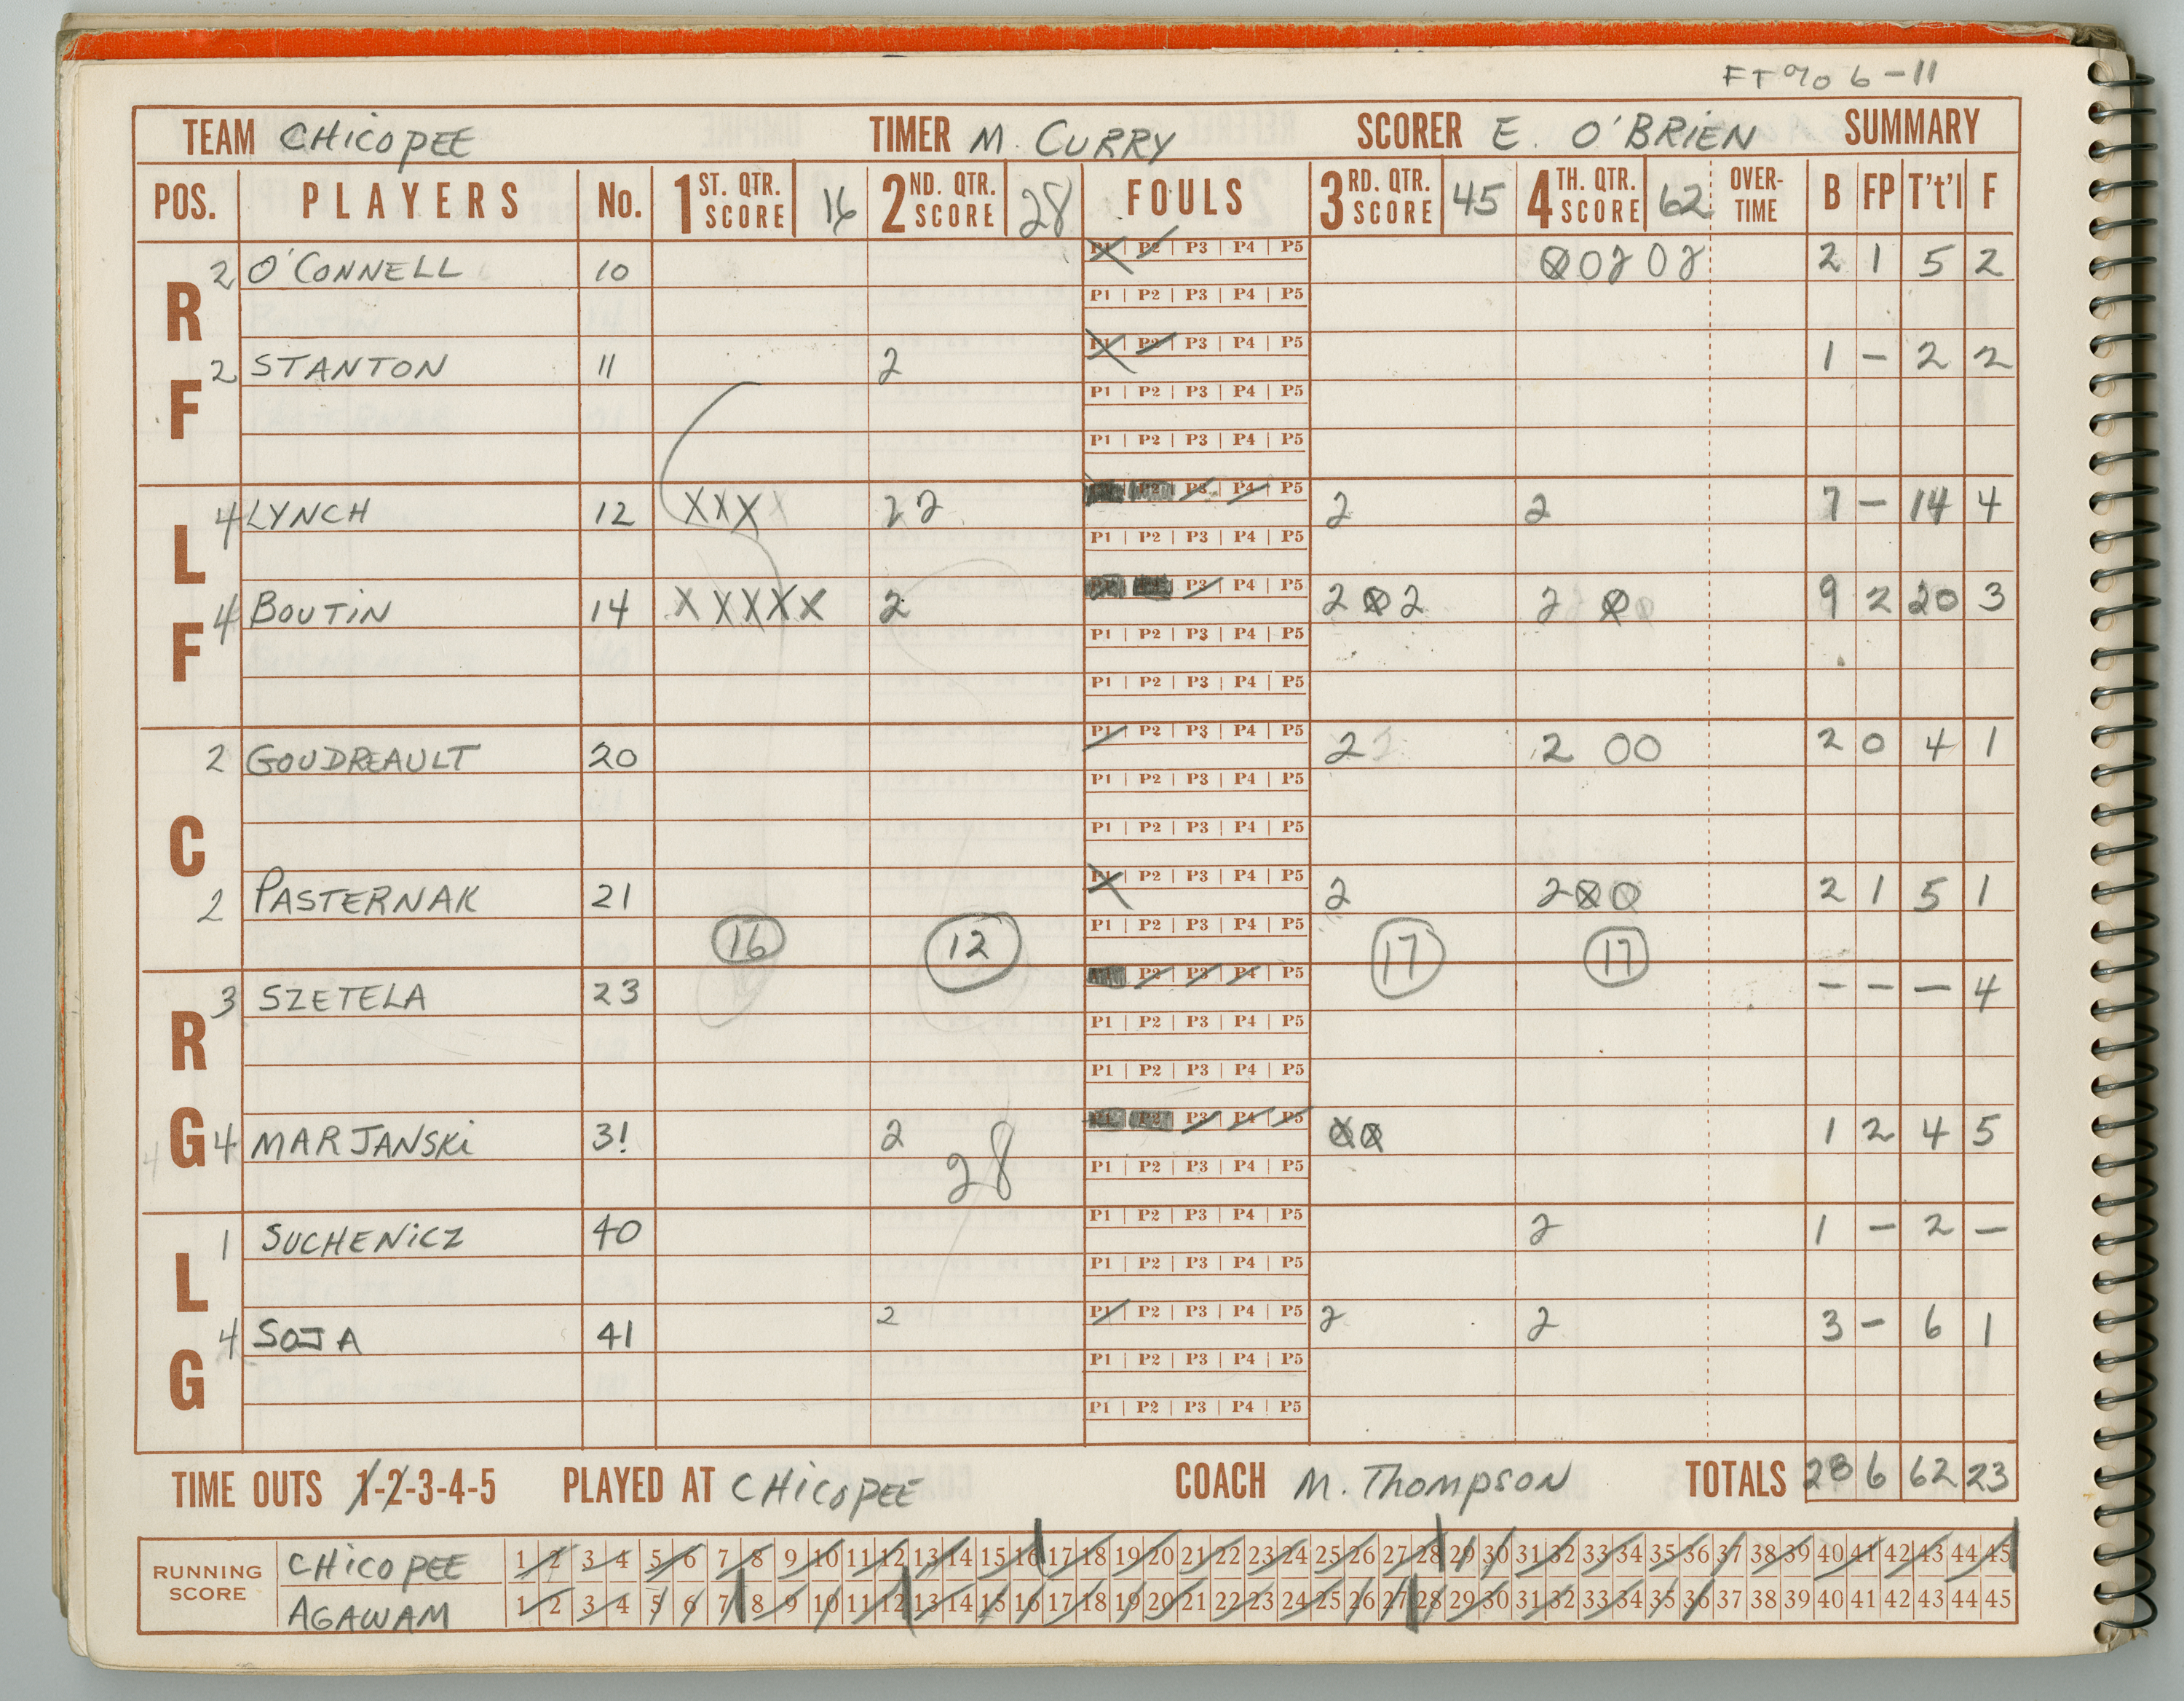 FT% 6-11
TEAM CHICOPEE TIMER M. CURRY SCORER E. O'BRIEN SUMMARY
POS. PLAYERS No. 1 ST. QTR. SCORE 16 2 ND. QTR. SCORE 28 FOULS 3 RD. QTR. SCORE 45 4 TH. QTR. SCORE 62 OVER-TIME B FP T't'l F
RF
2 O'CONNELL 10 P1 P2 P3 P4 P5 0 0 2 0 2 2 1 5 2
P1 P2 P3 P4 P5
2 STANTON 11 2 P1 P2 P3 P4 P5 1 - 2 2
P1 P2 P3 P4 P5
P1 P2 P3 P4 P5
LF
4 LYNCH 12 XXXX 2 2 P3 P4 P5 2 2 7 - 14 4
P1 P2 P3 P4 P5
4 BOUTIN 14 XXXXX 2 P3 P4 P5 2 0 2 2 0 0 9 2 20 3
P1 P2 P3 P4 P5
P1 P2 P3 P4 P5
C
2 GOUDREAULT 20 P1 P2 P3 P4 P5 2 2 2 0 0 2 0 4 1
P1 P2 P3 P4 P5
P1 P2 P3 P4 P5
2 PASTERNAK 21 P1 P2 P3 P4 P5 2 2 0 0 2 1 5 1
16 12 P1 P2 P3 P4 P5 17 17
RG
3 SZETELA 23 P2 P3 P4 P5 - - - 4
P1 P2 P3 P4 P5
P1 P2 P3 P4 P5
4 4 MARJANSKI 31 2 P1 P2 P3 P4 P5 0 0 1 2 4 5
28 P1 P2 P3 P4 P5
LG
1 SUCHENICZ 40 P1 P2 P3 P4 P5 2 1 - 2 -
P1 P2 P3 P4 P5
4 SOJA 41 2 P1 P2 P3 P4 P5 2 2 3 - 6 1
P1 P2 P3 P4 P5
P1 P2 P3 P4 P5
TIME OUTS 1-2-3-4-5 PLAYED AT CHICOPEE COACH M. THOMPSON TOTALS 28 6 62 23
RUNNING SCORE
CHICOPEE 1 2 3 4 5 6 7 8 9 10 11 12 13 14 15 16 17 18 19 20 21 22 23 24 25 26 27 28 29 30 31 32 33 34 35 36 37 38 39 40 41 42 43 44 45
AGAWAM 1 2 3 4 5 6 7 8 9 10 11 12 13 14 15 16 17 18 19 20 21 22 23 24 25 26 27 28 29 30 31 32 33 34 35 36 37 38 39 40 41 42 43 44 45